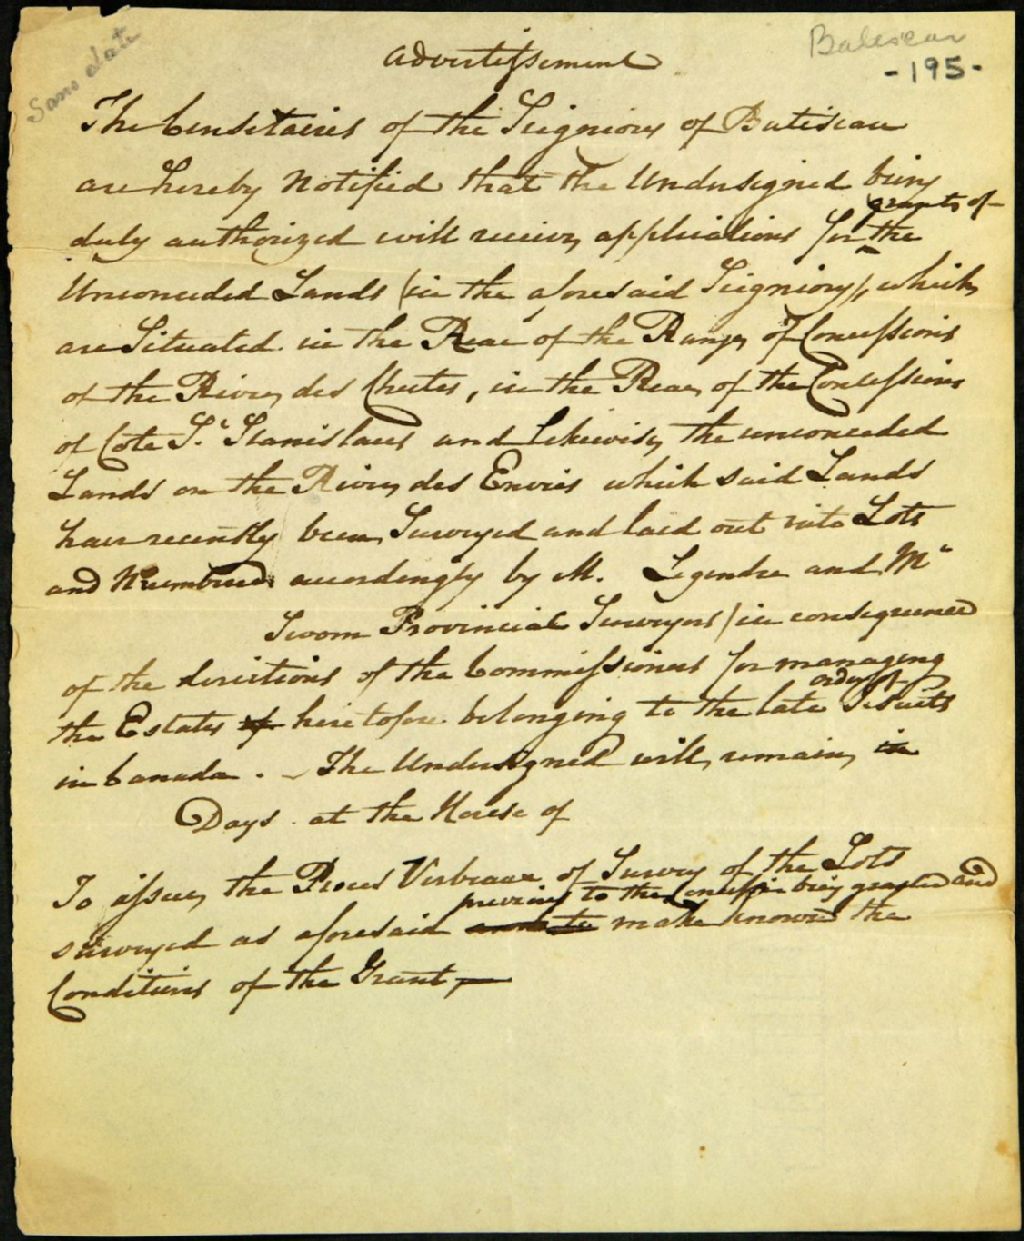 Sans date
Batiscan
-195-
Advertissement
The Censitaires of the Seigniory of Batiscan
are hereby Notified that the Undersigned being
duly authorized will receive applications for the grants of
Unconceded Lands (in the aforesaid Seigniory), which
are Situated in the Rear of the Range of Concessions
of the River des Chutes, in the Rear of the Concessions
of Cote St. Stanislaus and Likewise the unconceded
Lands on the River des Envies which said Lands
have recently been Surveyed and laid out into Lots
and Numbered accordingly by M. Legendre and Mr
Sworn Provincial Surveyors (in consequence
of the directions of the Commissioners for managing
the Estates of heretofore belonging to the late order of Jesuits
in Canada. - The Undersigned will remain in
Days at the House of
To issue the Proces Verbaux of Survey of the Lots
surveyed as aforesaid previous to the Concession being granted and make known the
Conditions of the Grant,